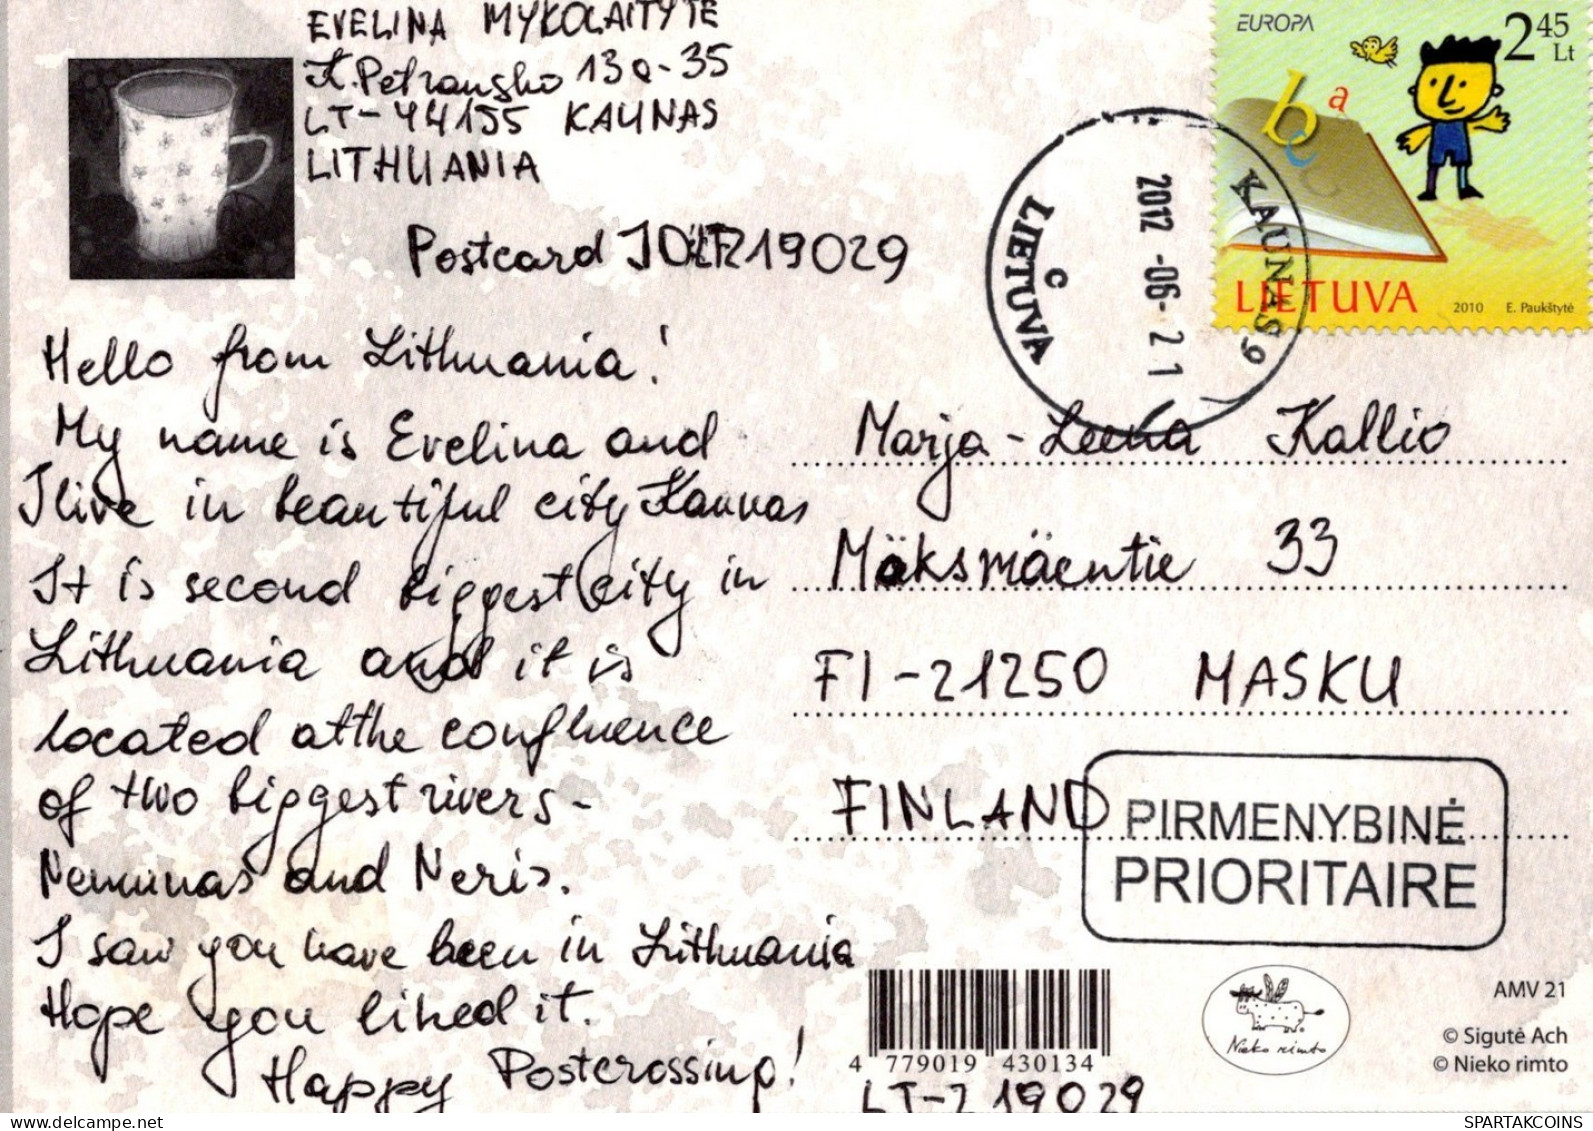 EVELINA MYKOLAITYTE
K. Petrausko 13a-35
LT-44155 KAUNAS
LITHUANIA
Postcard ID LT-219029
Hello from Lithuania!
My name is Evelina and
I live in beautiful city Kaunas
It is second biggest city in
Lithuania and it is
located at the confluence
of two biggest rivers -
Nemunas and Neris.
I saw you have been in Lithuania
Hope you liked it.
Happy Postcrossing!
EUROPA
2 45 Lt
b a c
LIETUVA 2010 E. Paukštytė
KAUNAS 9
2012 -06- 21
C
LIETUVA
Marja-Leena Kallio
Mäksmäentie 33
FI-21250 MASKU
FINLAND
PIRMENYBINĖ
PRIORITAIRE
4 779019 430134
LT-219029
Nieko rimto
AMV 21
© Sigutė Ach
© Nieko rimto
SPARTAKCOINS